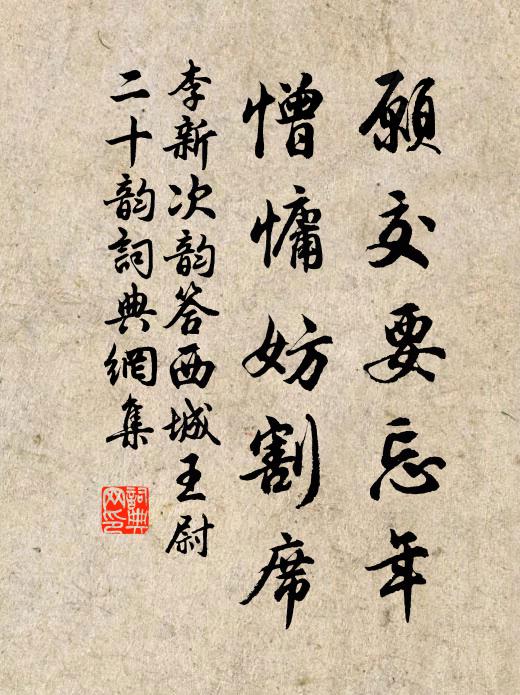 願交要忘年
憎慵妨割席
李新次韵答西城王尉
二十韵詞典網集
詞典网印